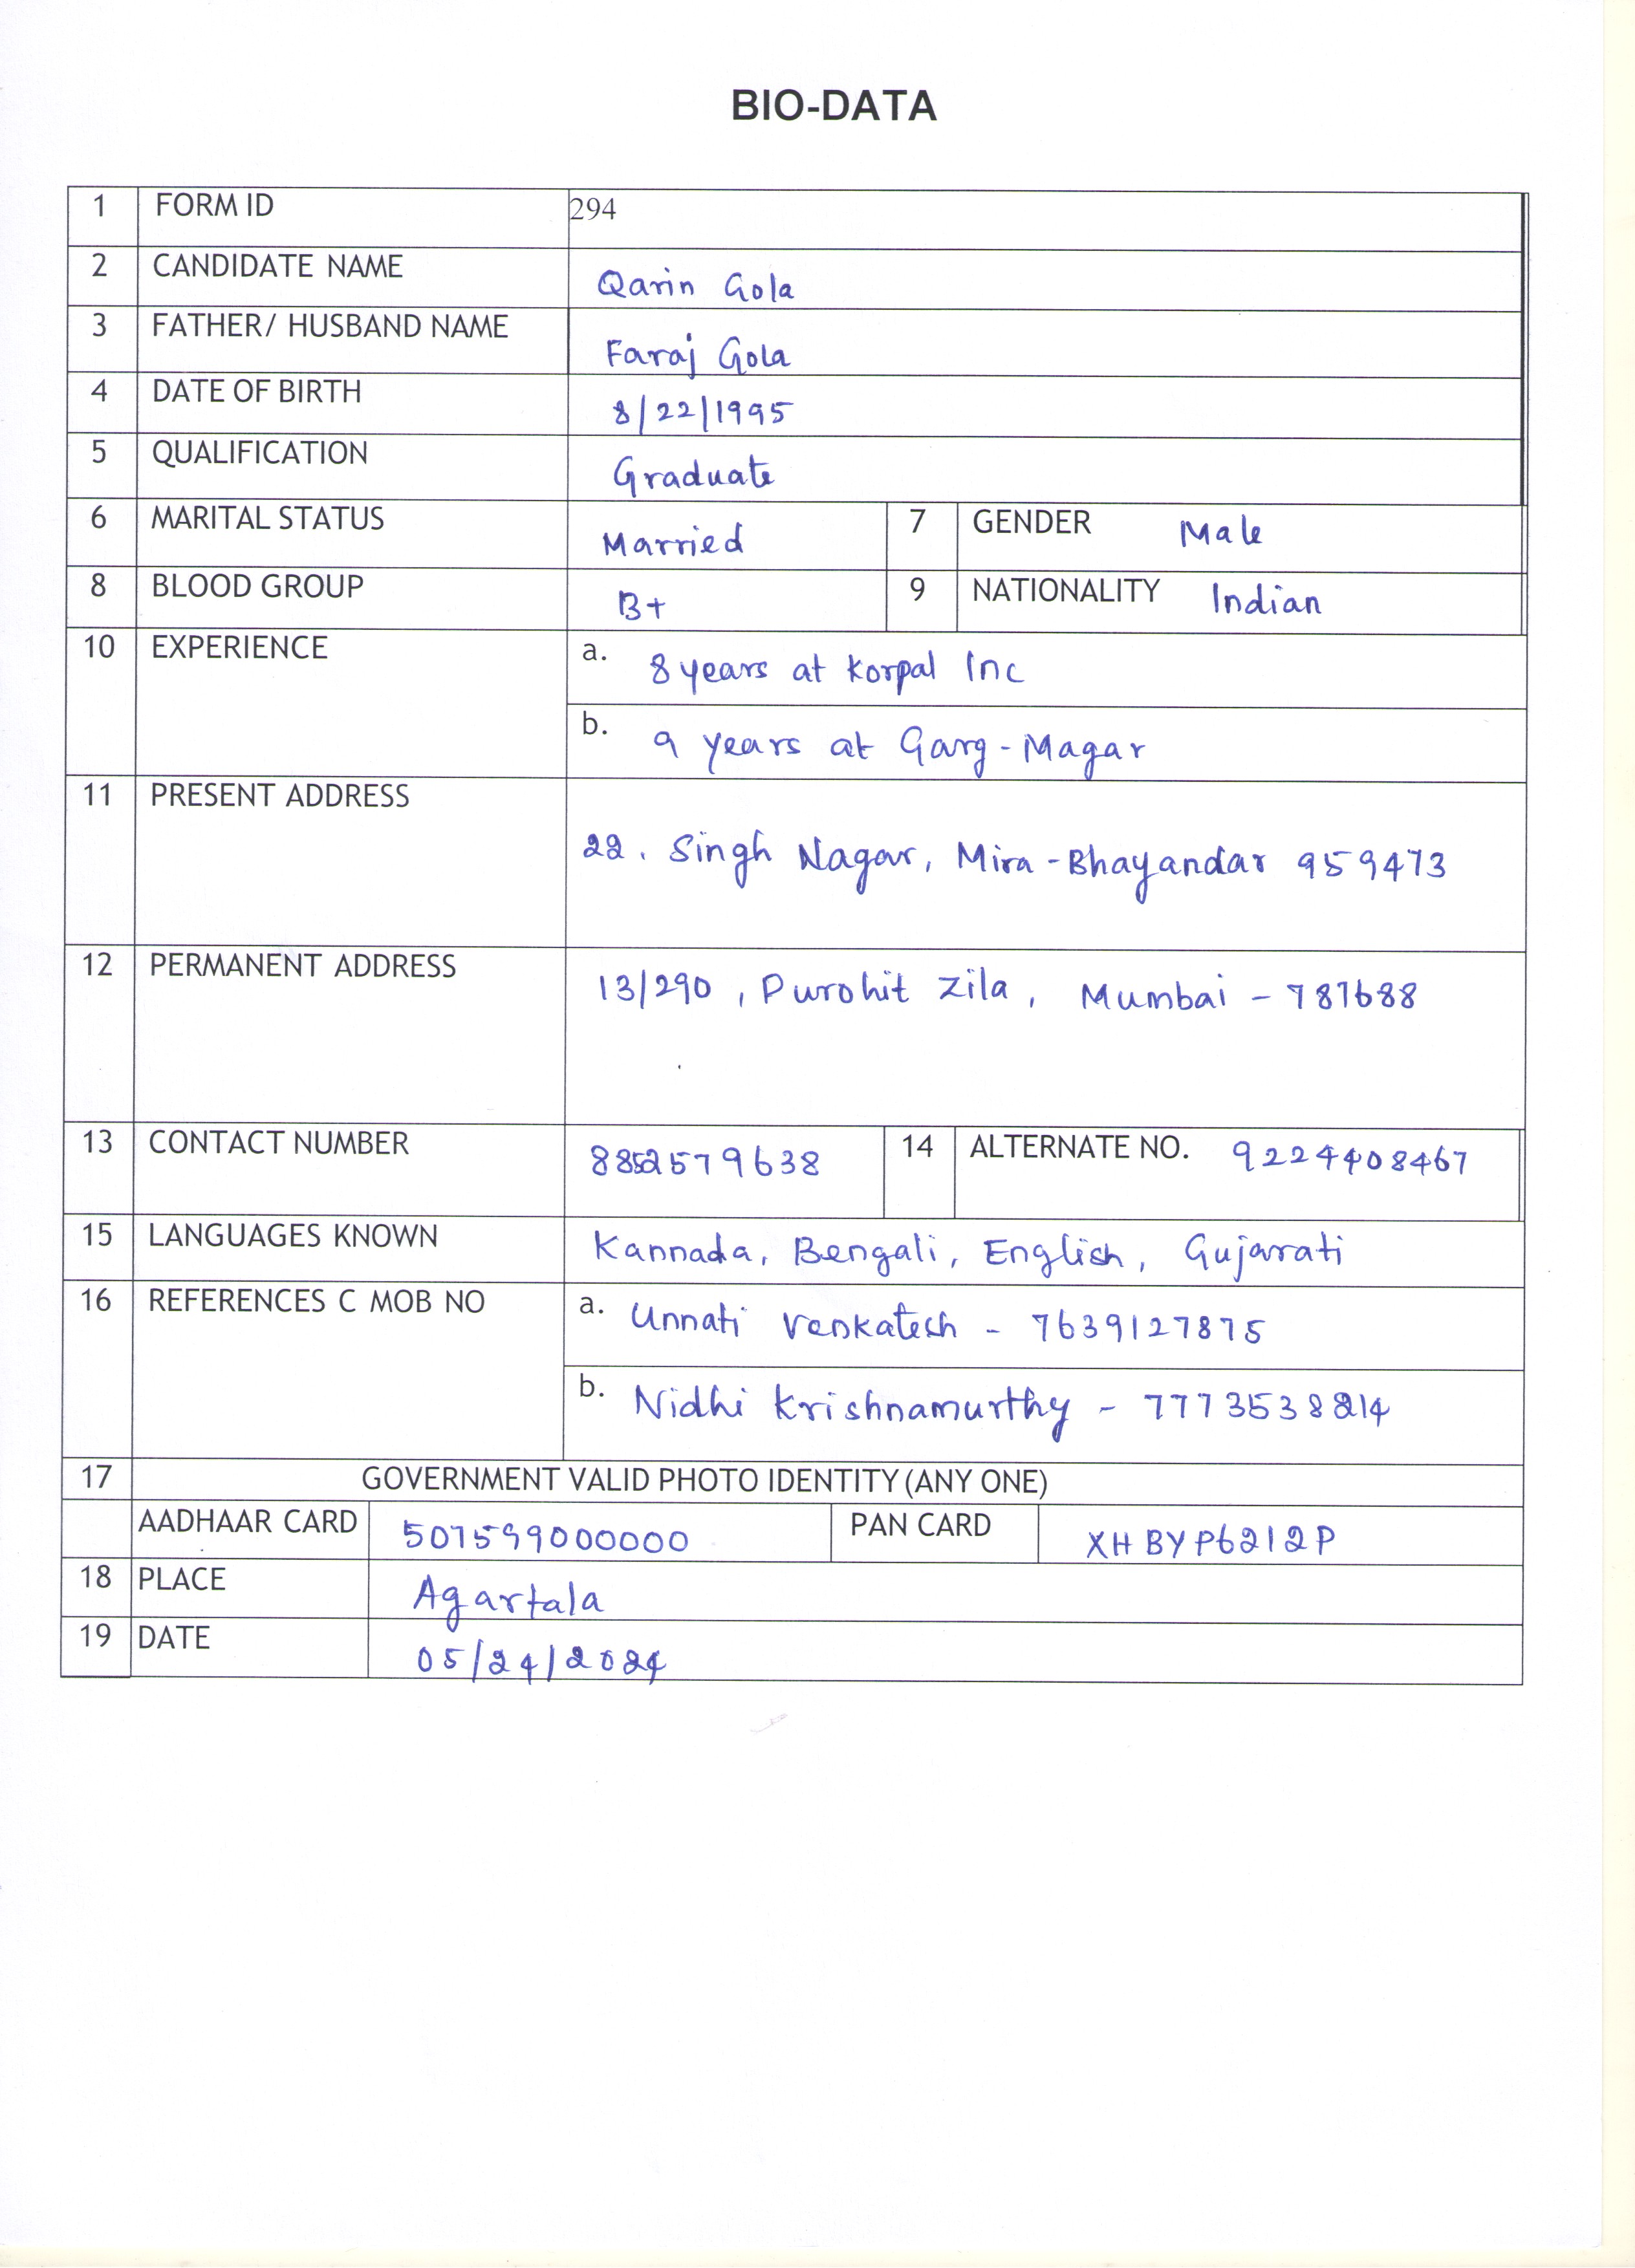 BIO-DATA
1 FORM ID 294
2 CANDIDATE NAME Qarin Gola
3 FATHER/ HUSBAND NAME Faraj Gola
4 DATE OF BIRTH 8/22/1995
5 QUALIFICATION Graduate
6 MARITAL STATUS Married 7 GENDER Male
8 BLOOD GROUP B+ 9 NATIONALITY Indian
10 EXPERIENCE a. 8 years at Korpal Inc
b. 9 years at Garg-Magar
11 PRESENT ADDRESS 22. Singh Nagar, Mira-Bhayandar 959473
12 PERMANENT ADDRESS 13/290, Purohit Zila, Mumbai - 787688
13 CONTACT NUMBER 8852579638 14 ALTERNATE NO. 9224408467
15 LANGUAGES KNOWN Kannada, Bengali, English, Gujarati
16 REFERENCES C MOB NO a. Unnati Venkatech - 7639127875
b. Nidhi Krishnamurthy - 7773538214
17 GOVERNMENT VALID PHOTO IDENTITY (ANY ONE)
AADHAAR CARD 501599000000 PAN CARD XHBYP6212P
18 PLACE Agartala
19 DATE 05/24/2024